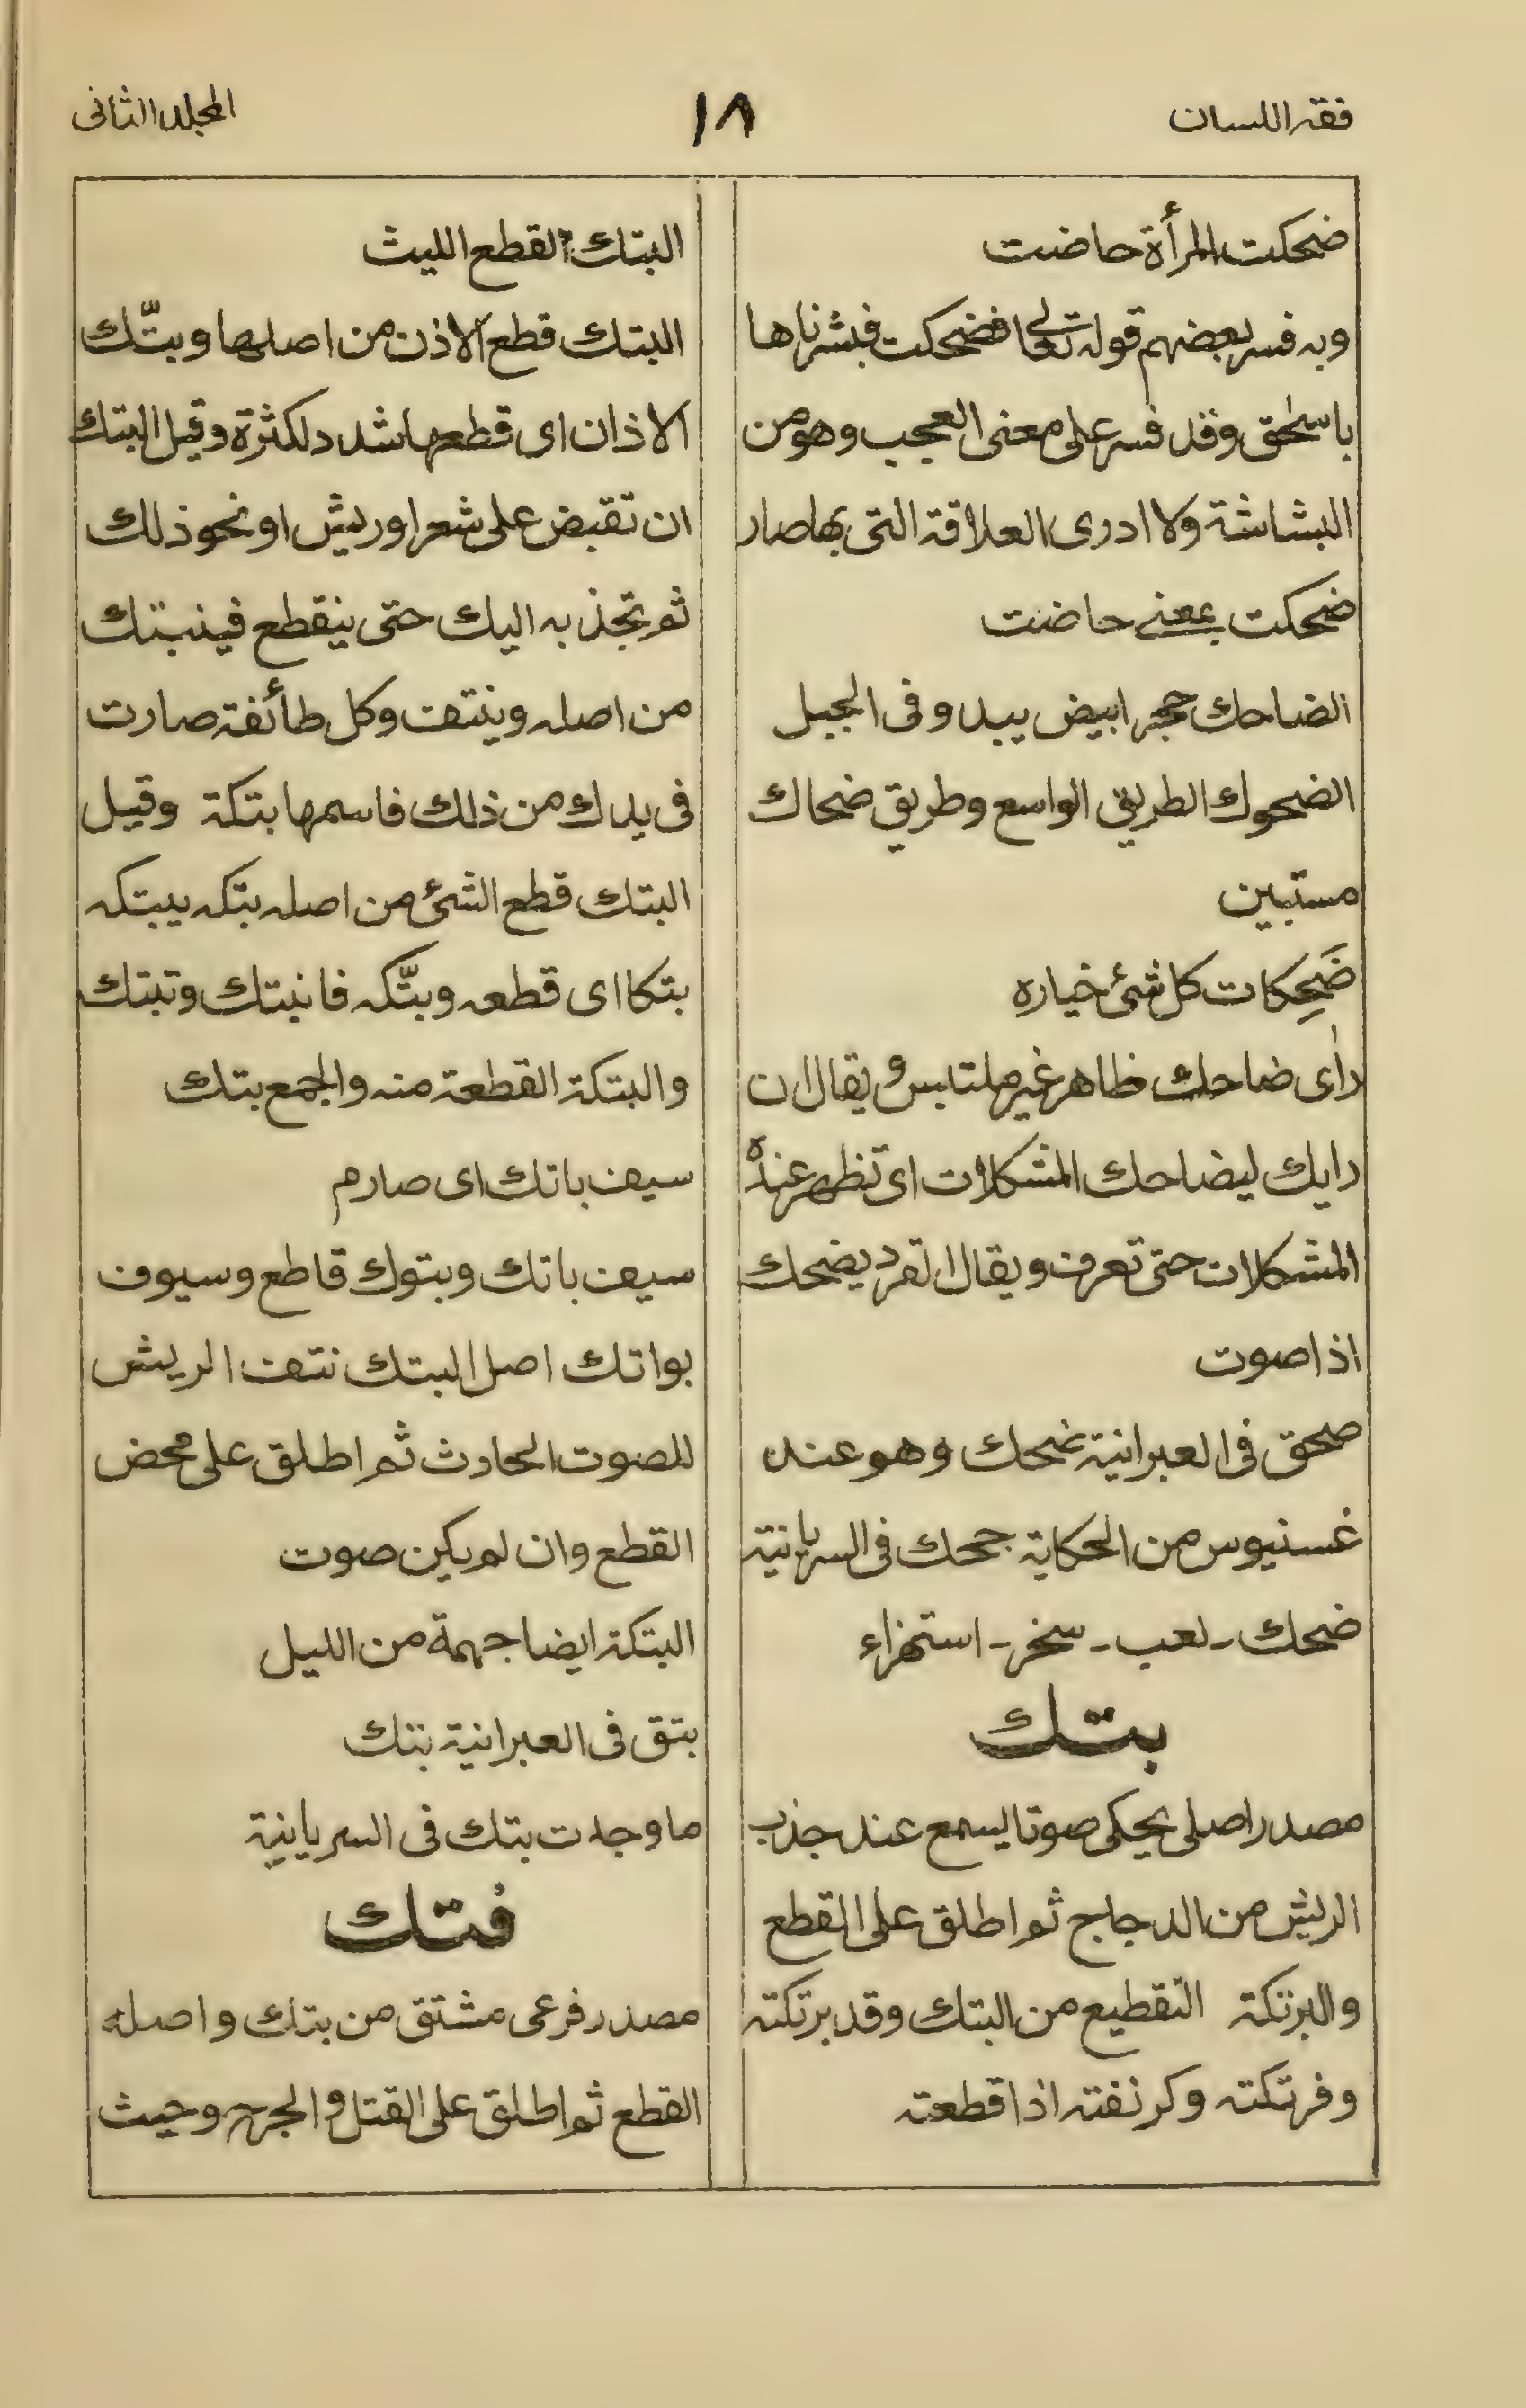 فقه اللسان
١٨
المجلد الثانى
ضحكت المرأة حاضت
وبه فسر بعضهم قوله تعالى فضحكت فبشرناها
باسحٰق وقد فسر على معنى العجب وهو من
البشاشة ولا ادرى العلاقة التى بها صار
ضحكت بمعنى حاضت
الضاحك حجر ابيض يبدو فى الجبل
الضحوك الطريق الواسع وطريق ضحاك
مستبين
ضَحِكات كل شئ خياره
رأى ضاحك ظاهر غير ملتبس و يقال ان
رايك ليضاحك المشكلات اى تظهر عنده
المشكلات حتى تعرف ويقال القرد يضحك
اذا صوت
صحق فى العبرانية ضحك وهو عند
غسنيوس من الحكاية جحك فى السريانية
ضحك - لعب - سخر - استهزاء
بتك
مصدر اصلى يحكى صوتا يسمع عند جذب
الريش من الدجاج ثم اطلق على القطع
والبرتكة التقطيع من البتك وقد برتكته
وفرتكته وكرنفته اذا قطعته
البتك القطع الليث
البتك قطع الاذن من اصلها وبتّك
الاذان اى قطعها شدد لكثرة وقيل البتك
ان تقبض على شعر اوريش او نحو ذلك
ثم تجذبه اليك حتى ينقطع فينبتك
من اصله وينتف وكل طائفة صارت
فى يدك من ذلك فاسمها بتكة وقيل
البتك قطع الشئ من اصله بتكه يبتكه
بتكا اى قطعه وبتّكه فانبتك وتبتك
والبتكة القطعة منه والجمع بتك
سيف باتك اى صارم
سيف باتك وبتوك قاطع وسيوف
بواتك اصل البتك نتف الريش
للصوت الحادث ثم اطلق على محض
القطع وان لم يكن صوت
البتكة ايضا جهمة من الليل
بتق فى العبرانية بتك
ما وجدت بتك فى السريانية
فتك
مصدر فرعى مشتق من بتك واصله
القطع ثم اطلق على القتل والجرح وحيث